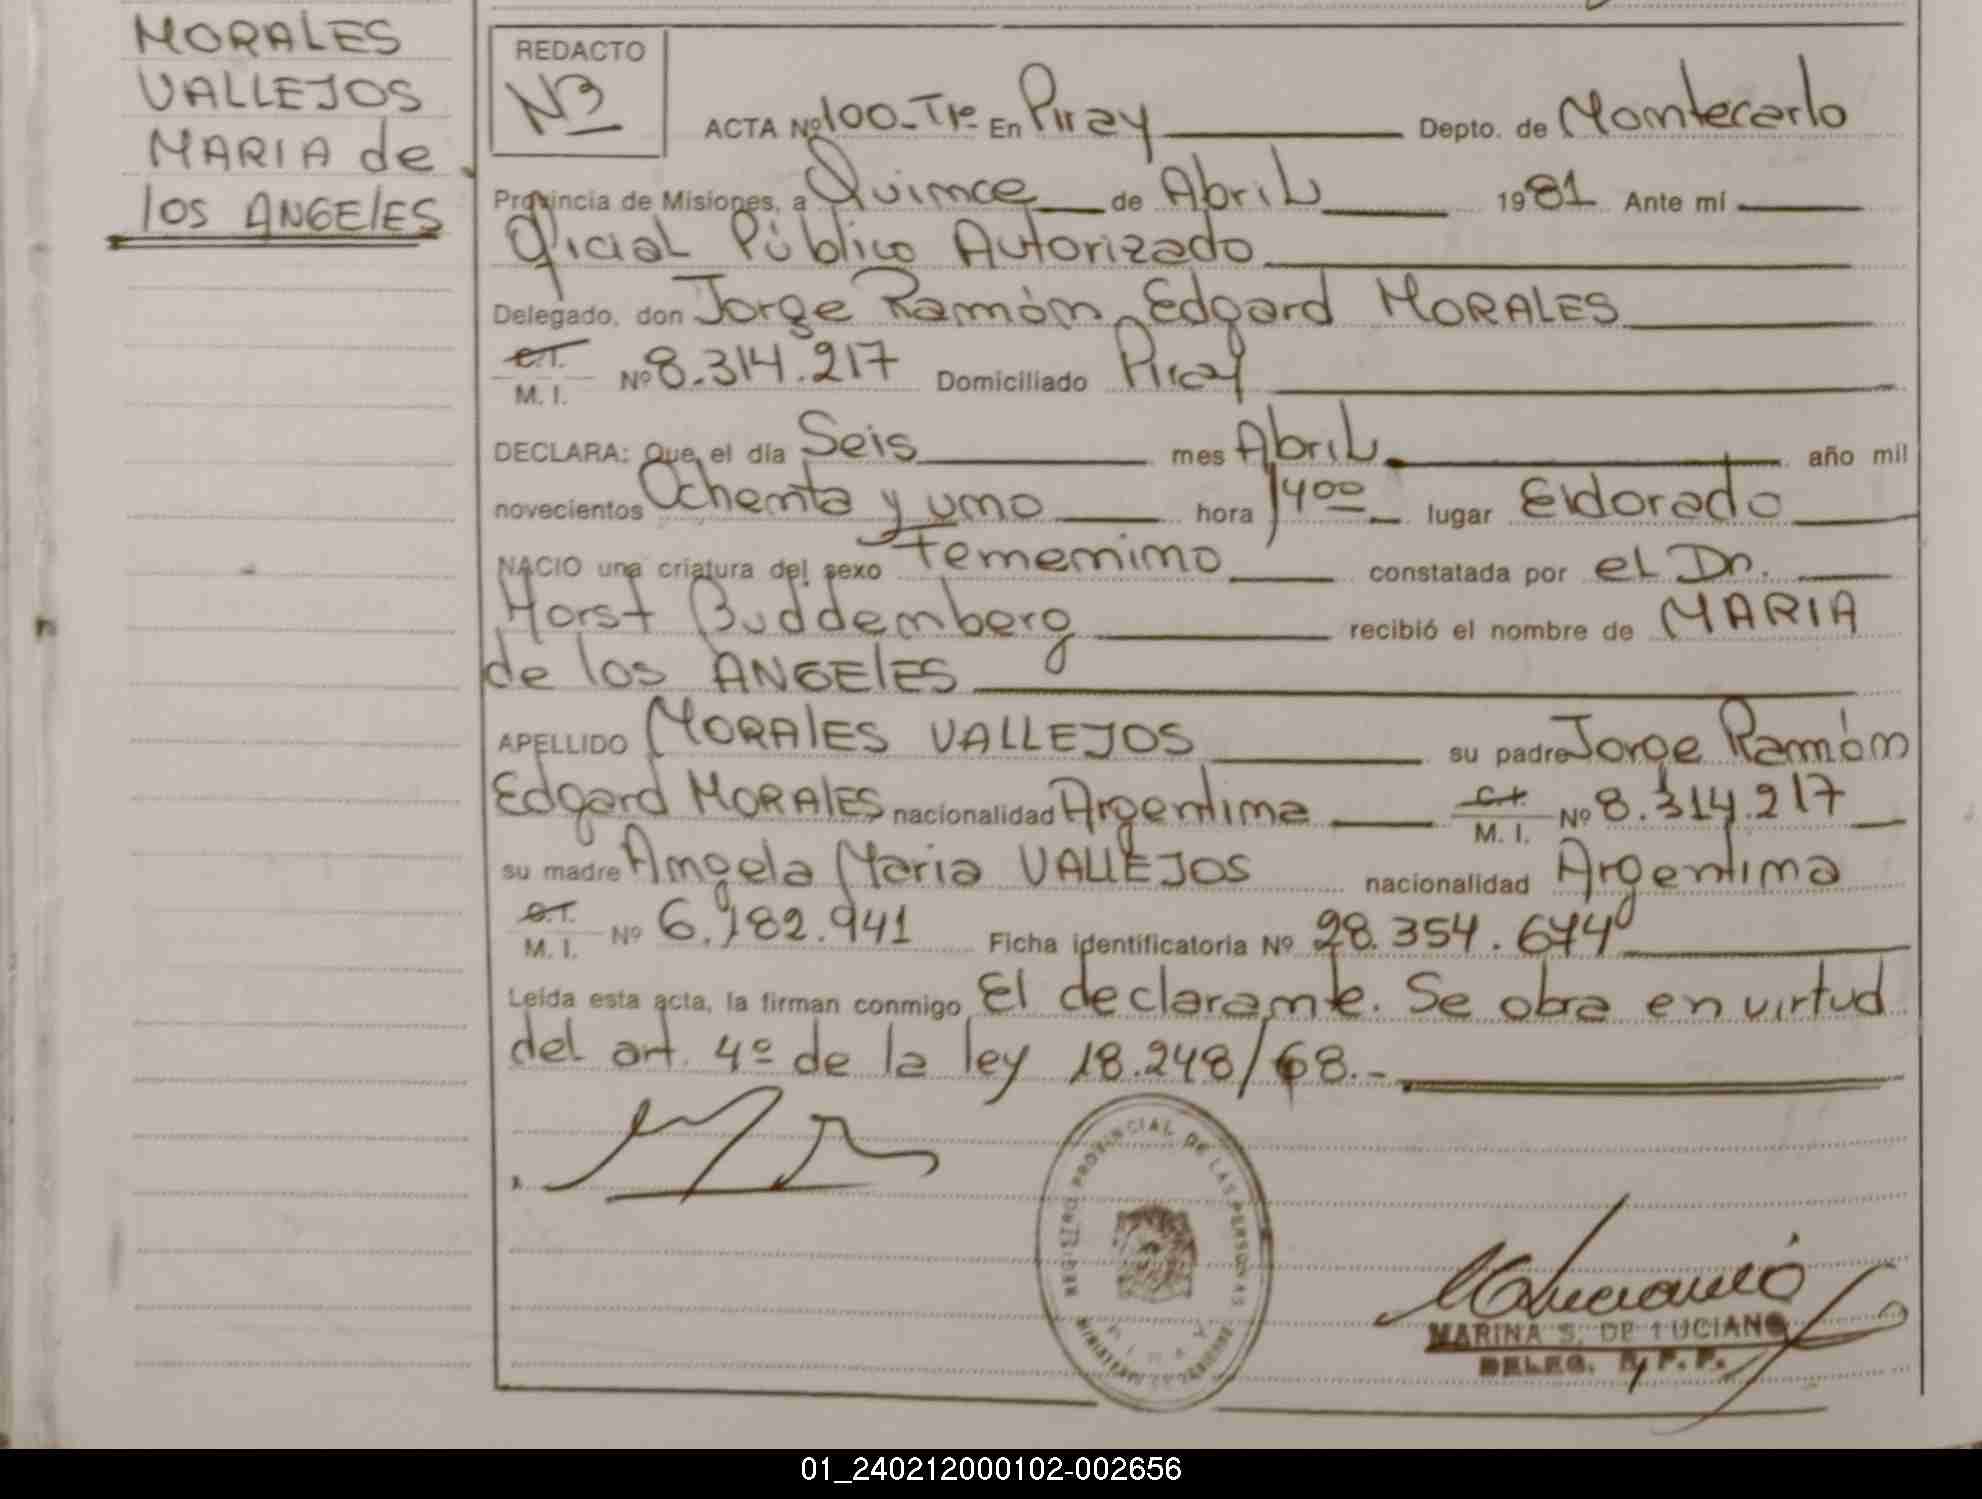 MORALES
VALLEJOS
MARIA de
los ANGElES
REDACTO
ACTA Nº 100-Tº- En Piray Depto. de Montecarlo
Provincia de Misiones, a Quince de Abril 1981 Ante mí
Oficial Público Autorizado
Delegado, don Jorge Ramón Edgard MORALES
C.I.
M. I. Nº 8.314.217 Domiciliado Piray
DECLARA: Que el día Seis mes Abril año mil
novecientos Ochenta y uno hora 1400 lugar Eldorado
NACIO una criatura del sexo Femenino constatada por el Dr.
Horst Buddemberg recibió el nombre de MARIA
de los ANGElES
APELLIDO MORAlES VALLEJOS su padre Jorge Ramón
Edgard MORAlES nacionalidad Argentina C.I.
M. I. Nº 8.314.217
su madre Angela Maria VALLEJOS nacionalidad Argentina
C.I.
M. I. Nº 6.182.941 Ficha identificatoria Nº 28.354.674
Leída esta acta, la firman conmigo El declarante. Se obra en virtud
del art. 4º de la ley 18.248/68.-
PROVINCIAL DE LAS PERSONAS
MARINA S. DE LUCIANO
DELEG. R. P. P.
01_240212000102-002656